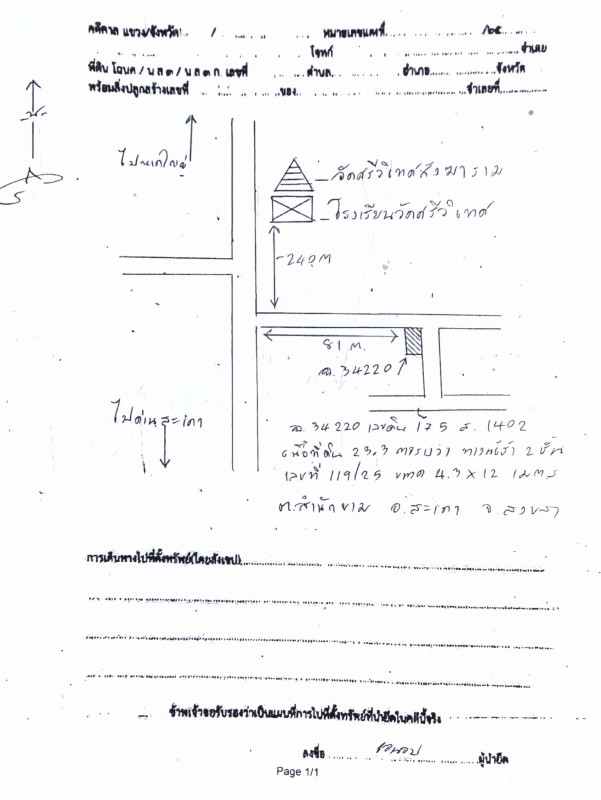 คดีศาล แขวง/จังหวัด / หมายเลขแดงที่ /๒๕
โจทก์ จำเลย
ที่ดิน โฉนด / น.ส.๓ / น.ส.๓ ก. เลขที่ ตำบล อำเภอ จังหวัด
พร้อมสิ่งปลูกสร้างเลขที่ ของ จำเลยที่
ไปหาดใหญ่
วัดศรีวิเทศสังฆาราม
โรงเรียนวัดศรีวิเทศ
240 ม
81 ม.
ฉ. 34220
ไปด่านสะเดา
ฉ. 34220 เลขดิน 175 ส. 1402
เนื้อที่ดิน 23.3 ตารางวา 2 ชั้น
เลขที่ 119/25 ขนาด 4.3 X 12 เมตร
ต.สำนักขาม อ.สะเดา จ.สงขลา
การเดินทางไปที่ตั้งทรัพย์(โดยสังเขป)
ข้าพเจ้าขอรับรองว่าเป็นแผนที่การไปที่ตั้งทรัพย์ที่นำยึดในคดีนี้จริง
ลงชื่อ ผู้นำยึด
Page 1/1